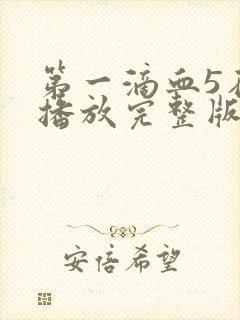 第一滴血5在
播放完整版
安倍希望